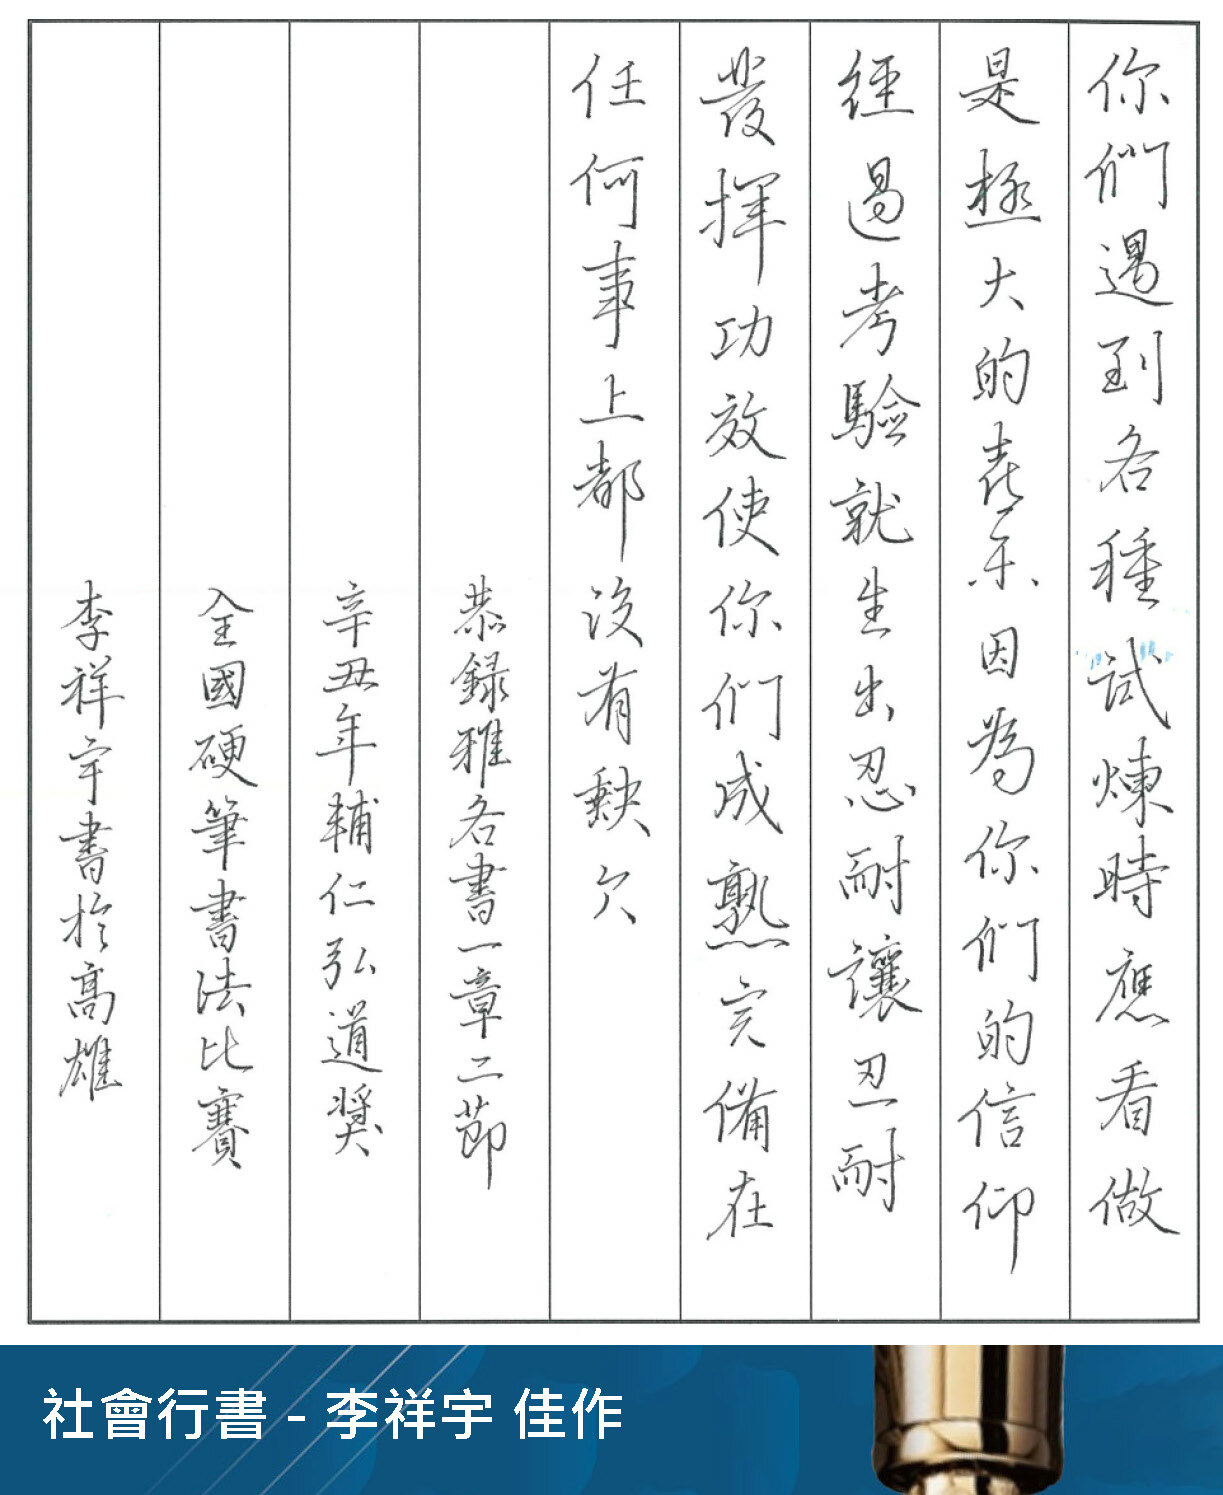 你們遇到各種試煉時應看做
是極大的喜乐因為你們的信仰
經過考驗就生出忍耐讓忍耐
發揮功效使你們成熟完備在
任何事上都沒有缺欠
恭錄雅各書一章二節
辛丑年輔仁弘道獎
全國硬筆書法比賽
李祥宇書於高雄
社會行書 - 李祥宇 佳作